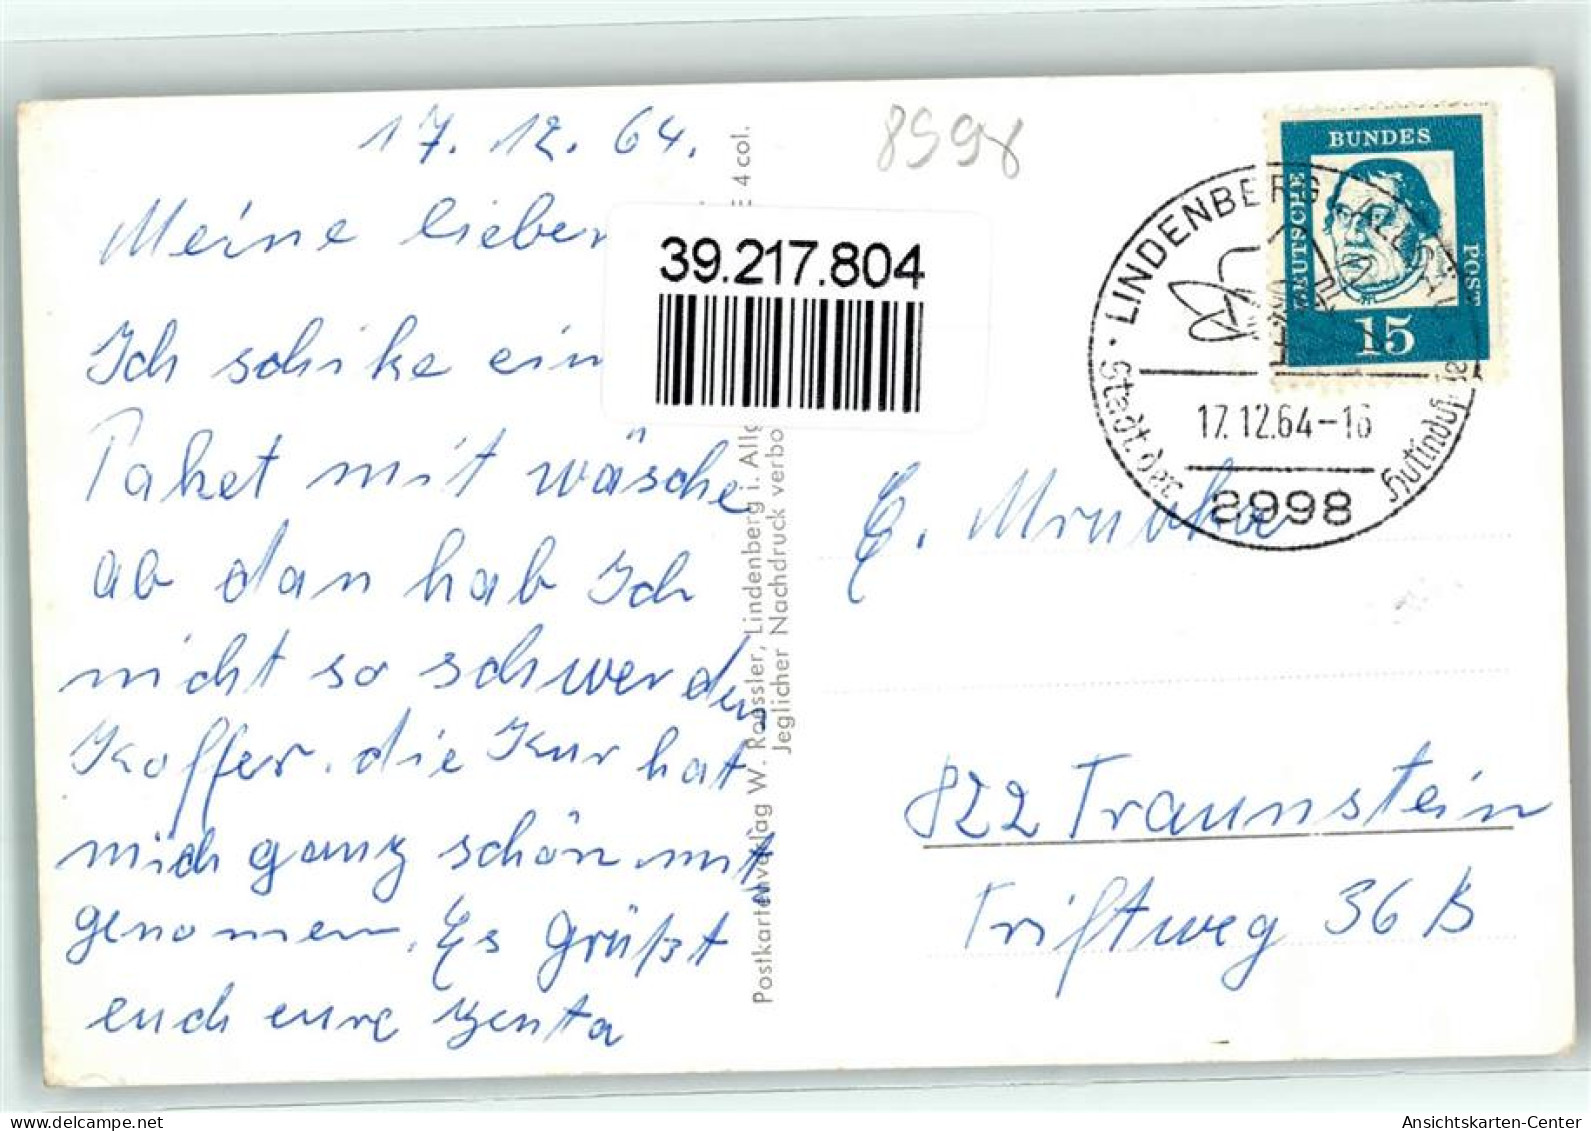 17. 12. 64.
Meine lieben
Ich schike ein
Paket mit wäsche
ab dan hab Ich
nicht so schwer den
Koffer. die Kur hat
mich ganz schön mit
genomen. Es Grüßt
euch eure Zenta
Postkartenverlag W. Roessler, Lindenberg i. Allg
Jeglicher Nachdruck verbo
E 4 col.
39.217.804
8998
BUNDES
DEUTSCHE
POST
15
· LINDENBERG
17.12.64-16
2998
E. Mrubka
822 Traunstein
Triftweg 36 B
delcampe.net
Ansichtskarten-Center